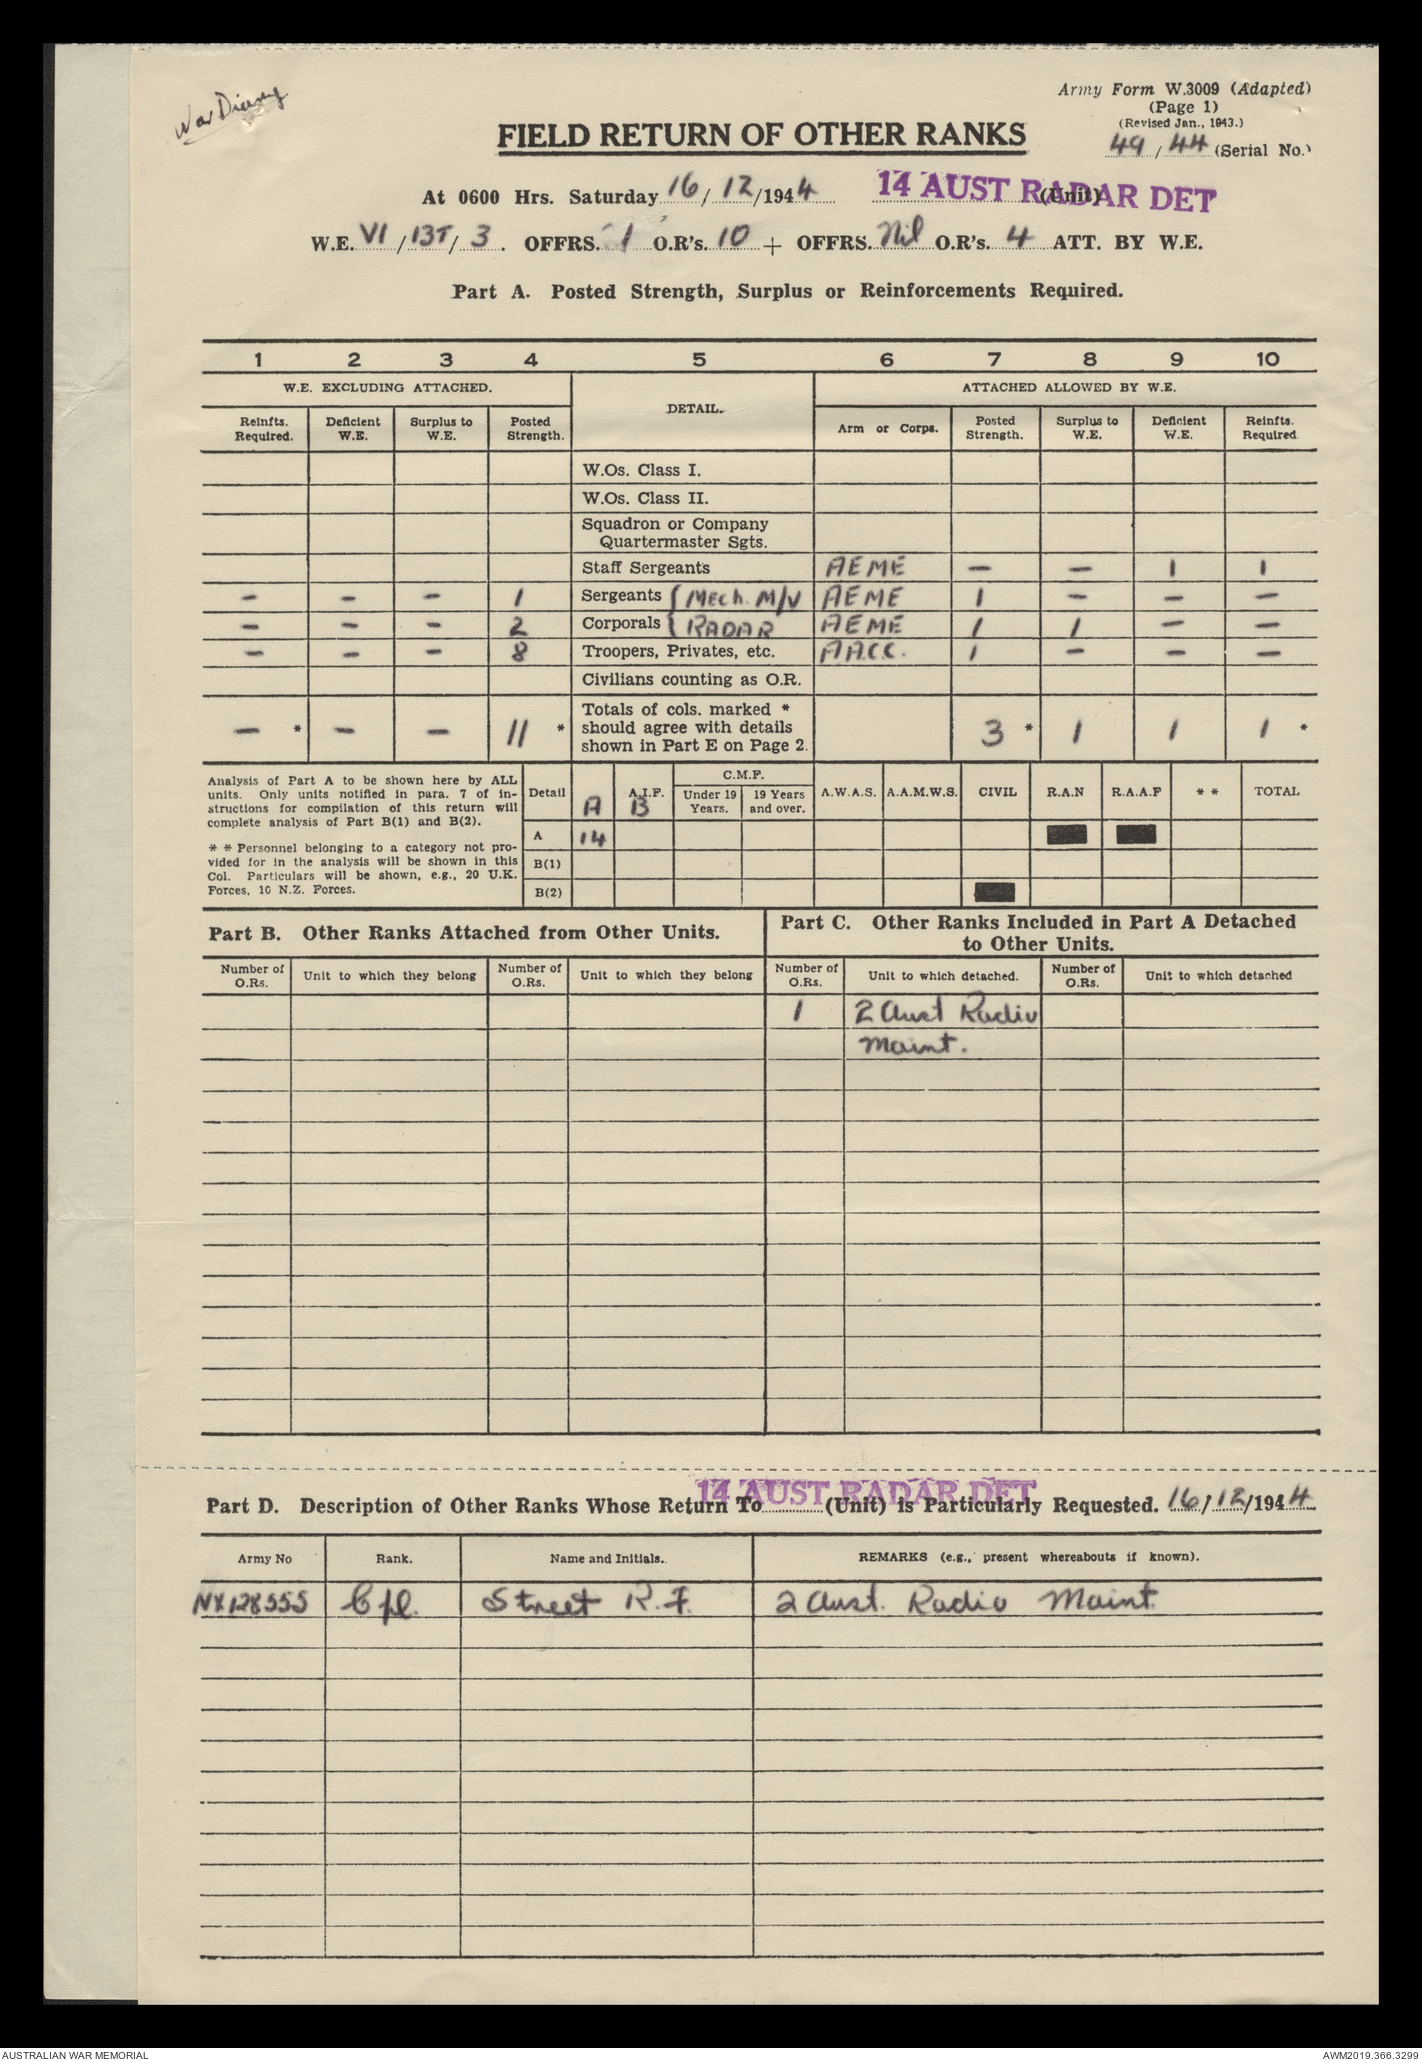 War Diary
Army Form W.3009 (Adapted)
(Page 1)
(Revised Jan., 1943.)
49/44 (Serial No.)
FIELD RETURN OF OTHER RANKS
At 0600 Hrs. Saturday 16/12/1944 14 AUST RADAR DET (Unit)
W.E. VI/13T/3. OFFRS. 1 O.R's. 10 + OFFRS. Nil O.R's. 4 ATT. BY W.E.
Part A. Posted Strength, Surplus or Reinforcements Required.
1 2 3 4 5 6 7 8 9 10
W.E. EXCLUDING ATTACHED. DETAIL. ATTACHED ALLOWED BY W.E.
Reinfts. Required. Deficient W.E. Surplus to W.E. Posted Strength. Arm or Corps. Posted Strength. Surplus to W.E. Deficient W.E. Reinfts. Required
W.Os. Class I.
W.Os. Class II.
Squadron or Company
Quartermaster Sgts.
Staff Sergeants AEME — — 1 1
— — — 1 Sergeants { Mech. M/V AEME 1 — — —
— — — 2 Corporals { RADAR AEME 1 1 — —
— — — 8 Troopers, Privates, etc. AACC. 1 — — —
Civilians counting as O.R.
Totals of cols. marked *
— * — — 11 * should agree with details 3 * 1 1 1 *
shown in Part E on Page 2.
Analysis of Part A to be shown here by ALL
units. Only units notified in para. 7 of in-
structions for compilation of this return will
complete analysis of Part B(1) and B(2).
* * Personnel belonging to a category not pro-
vided for in the analysis will be shown in this
Col. Particulars will be shown, e.g., 20 U.K.
Forces, 10 N.Z. Forces.
Detail A A.I.F. B C.M.F. Under 19 Years. 19 Years and over. A.W.A.S. A.A.M.W.S. CIVIL R.A.N R.A.A.F * * TOTAL
A 14
B(1)
B(2)
Part B. Other Ranks Attached from Other Units.
Part C. Other Ranks Included in Part A Detached
to Other Units.
Number of O.Rs. Unit to which they belong Number of O.Rs. Unit to which they belong Number of O.Rs. Unit to which detached. Number of O.Rs. Unit to which detached
1 2 Aust Radio
Maint.
14 AUST RADAR DET
Part D. Description of Other Ranks Whose Return To (Unit) is Particularly Requested. 16/12/1944
Army No Rank. Name and Initials. REMARKS (e.g., present whereabouts if known).
NX128555 Cpl. Street R.F. 2 Aust. Radio Maint.
AUSTRALIAN WAR MEMORIAL AWM2019.366.3299